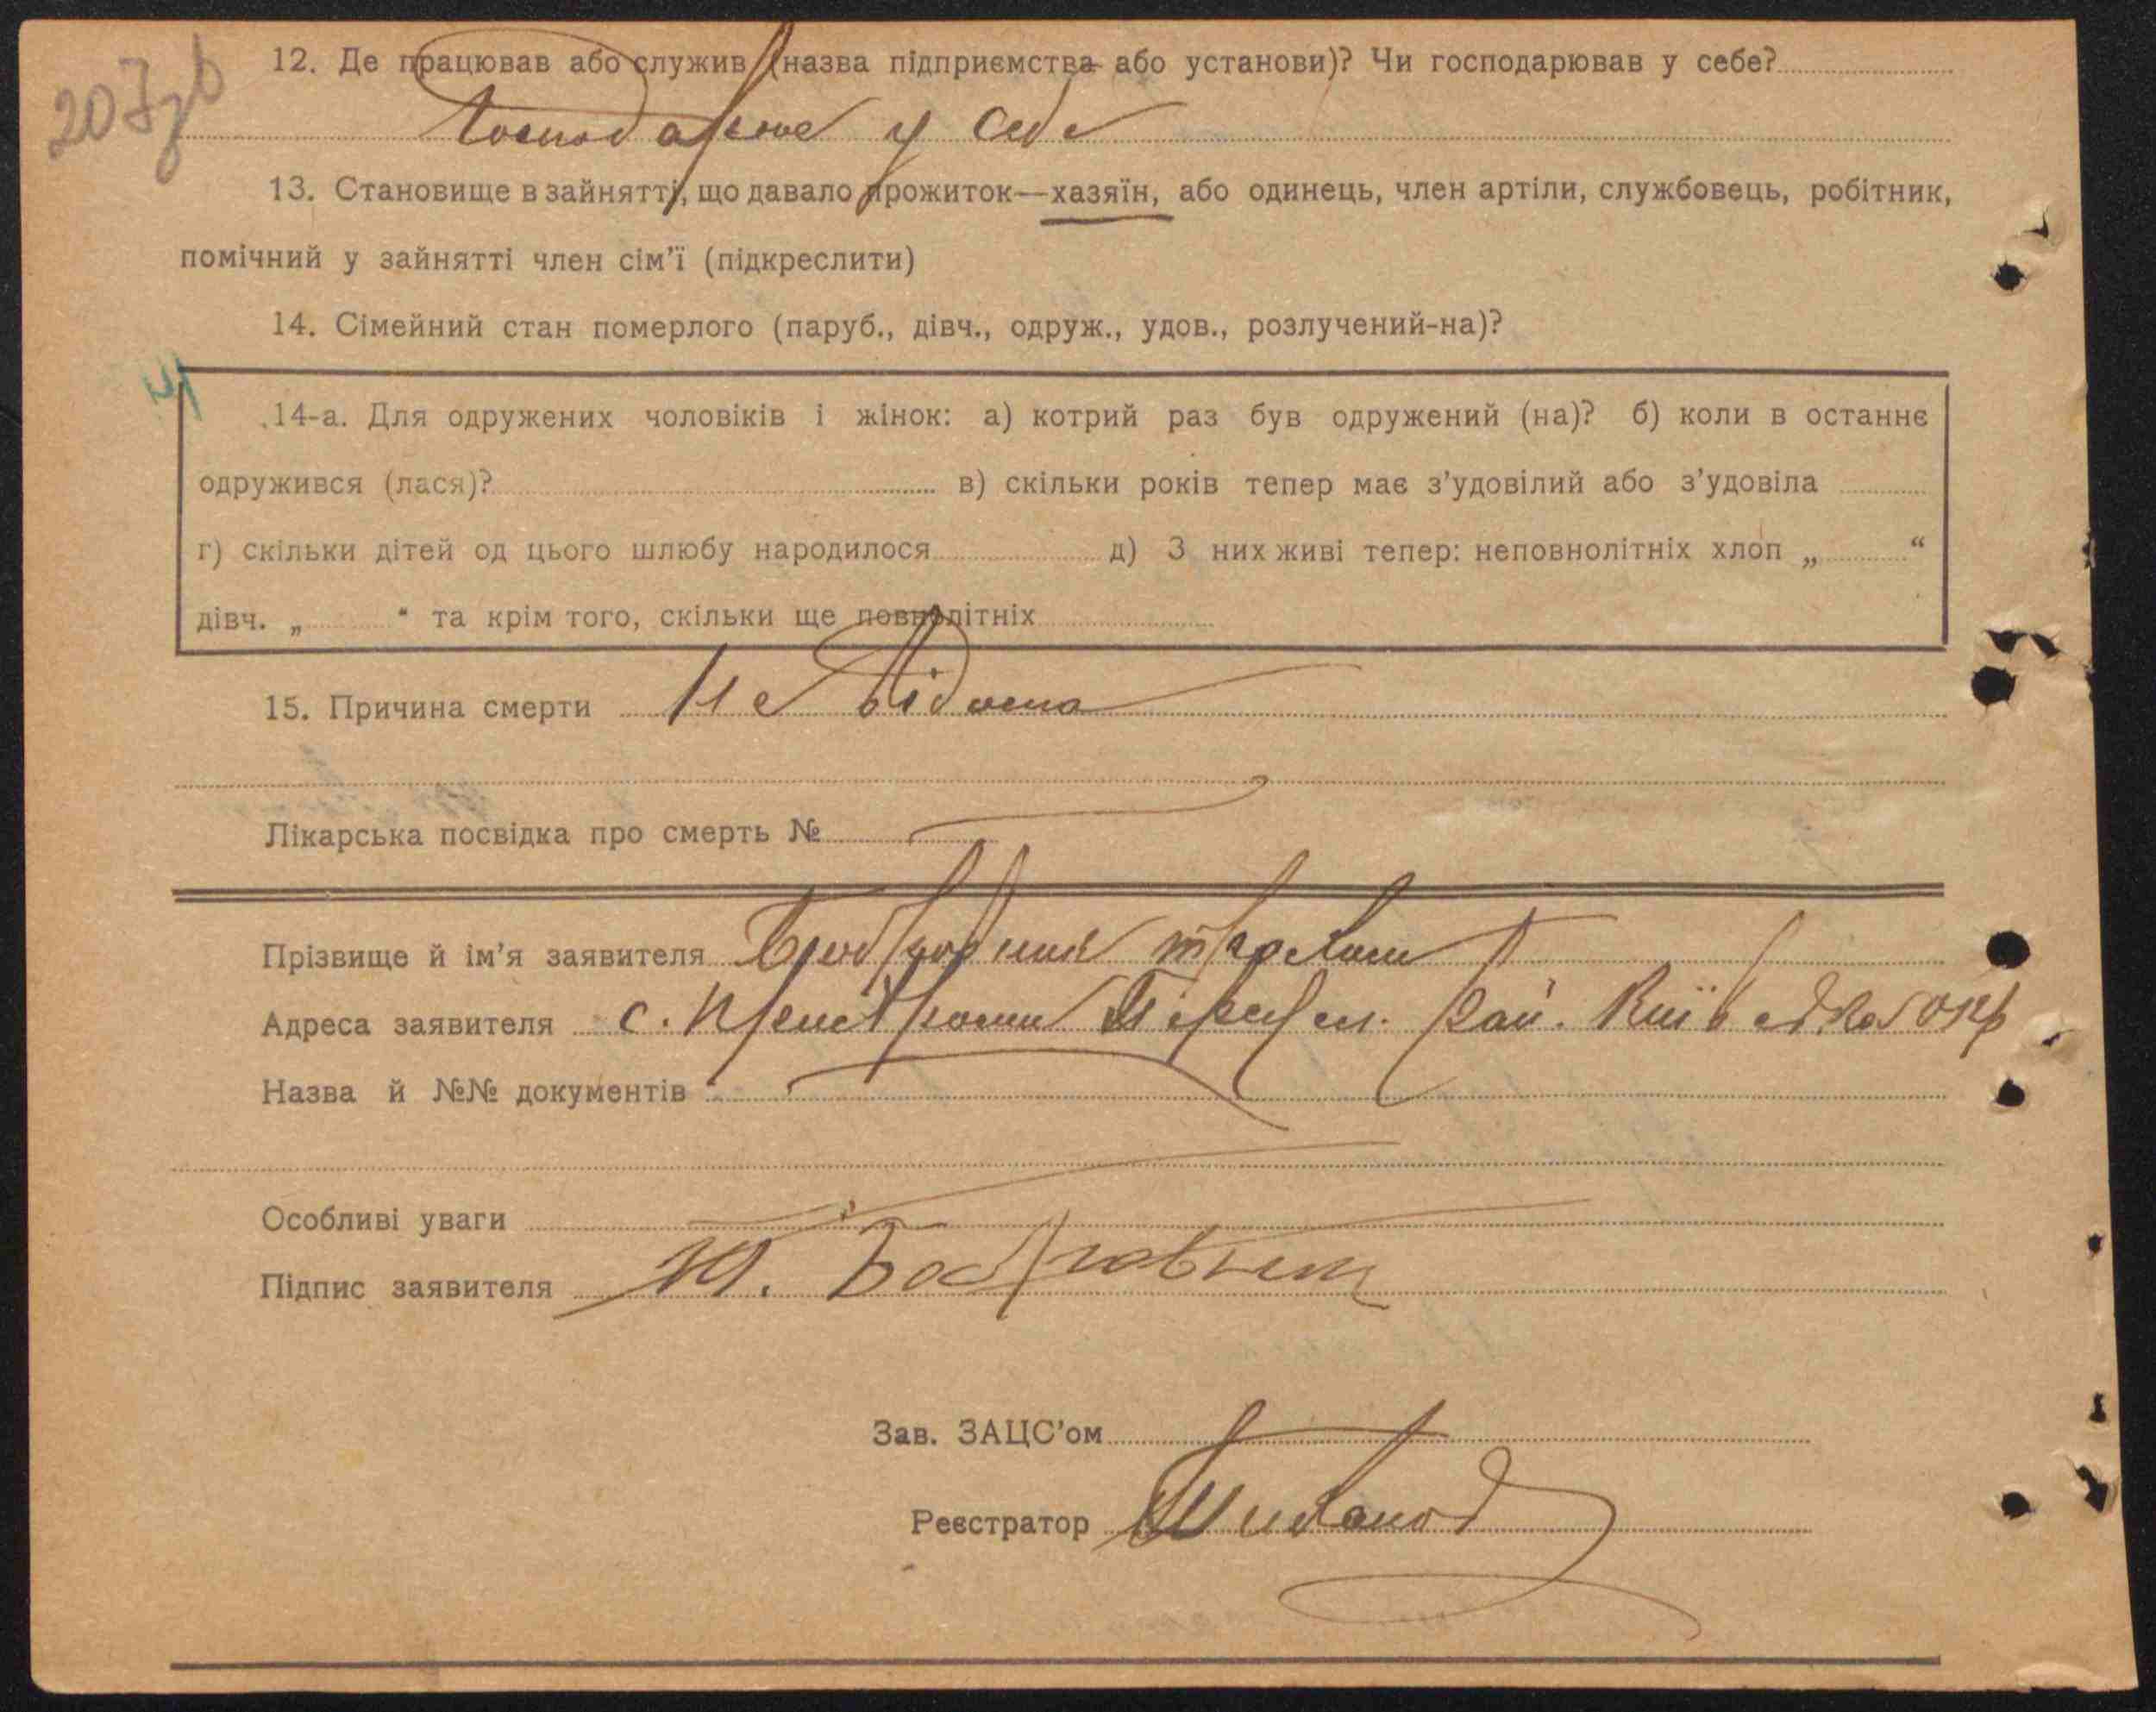 207зв
12. Де працював або служив (назва підприємства або установи)? Чи господарював у себе?
Господарює у себе
13. Становище в зайнятті, що давало прожиток—хазяїн, або одинець, член артіли, службовець, робітник,
помічний у зайнятті член сім'ї (підкреслити)
14. Сімейний стан померлого (паруб., дівч., одруж., удов., розлучений-на)?
14-а. Для одружених чоловіків і жінок: а) котрий раз був одружений (на)? б) коли в останнє
одружився (лася)? в) скільки років тепер має з'удовілий або з'удовіла
г) скільки дітей од цього шлюбу народилося д) З них живі тепер: неповнолітніх хлоп „ “
дівч. „ “ та крім того, скільки ще повнолітніх
15. Причина смерти Не відома
Лікарська посвідка про смерть №
Прізвище й ім'я заявителя
Адреса заявителя с. рай. Київ окр
Назва й №№ документів
Особливі уваги
Підпис заявителя Бобровник
Зав. ЗАЦС'ом
Реєстратор